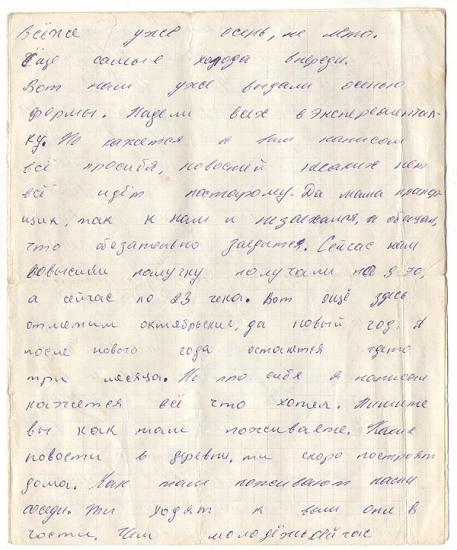 Всёже уже осень, не лето.
Еще самые холода впереди.
Вот нам уже выдали осенью
формы. Надели всех в эксперементал-
ку. Но кажется я вам написал
всё просибя, новостей никаких нет
всё идёт постарому. Да мама прапор-
щик, так к нам и не заехался, а обещал,
что обезательно заедит. Сейчас нам
повысили получку получали по 9-20,
а сейчас по 23 чека. Вот ещё здесь
отметим октябрьские, да новый год. А
после нового года останится гдето
три месяца. Но про сибя я написал
кажется всё что хотел. Пишите
вы как там поживаете. Какие
новости в деревни, ти скоро построят
дома. Как там поживают наши
соседи. Ти ходят к вам они в
гости. Чем молодёжь сейчас